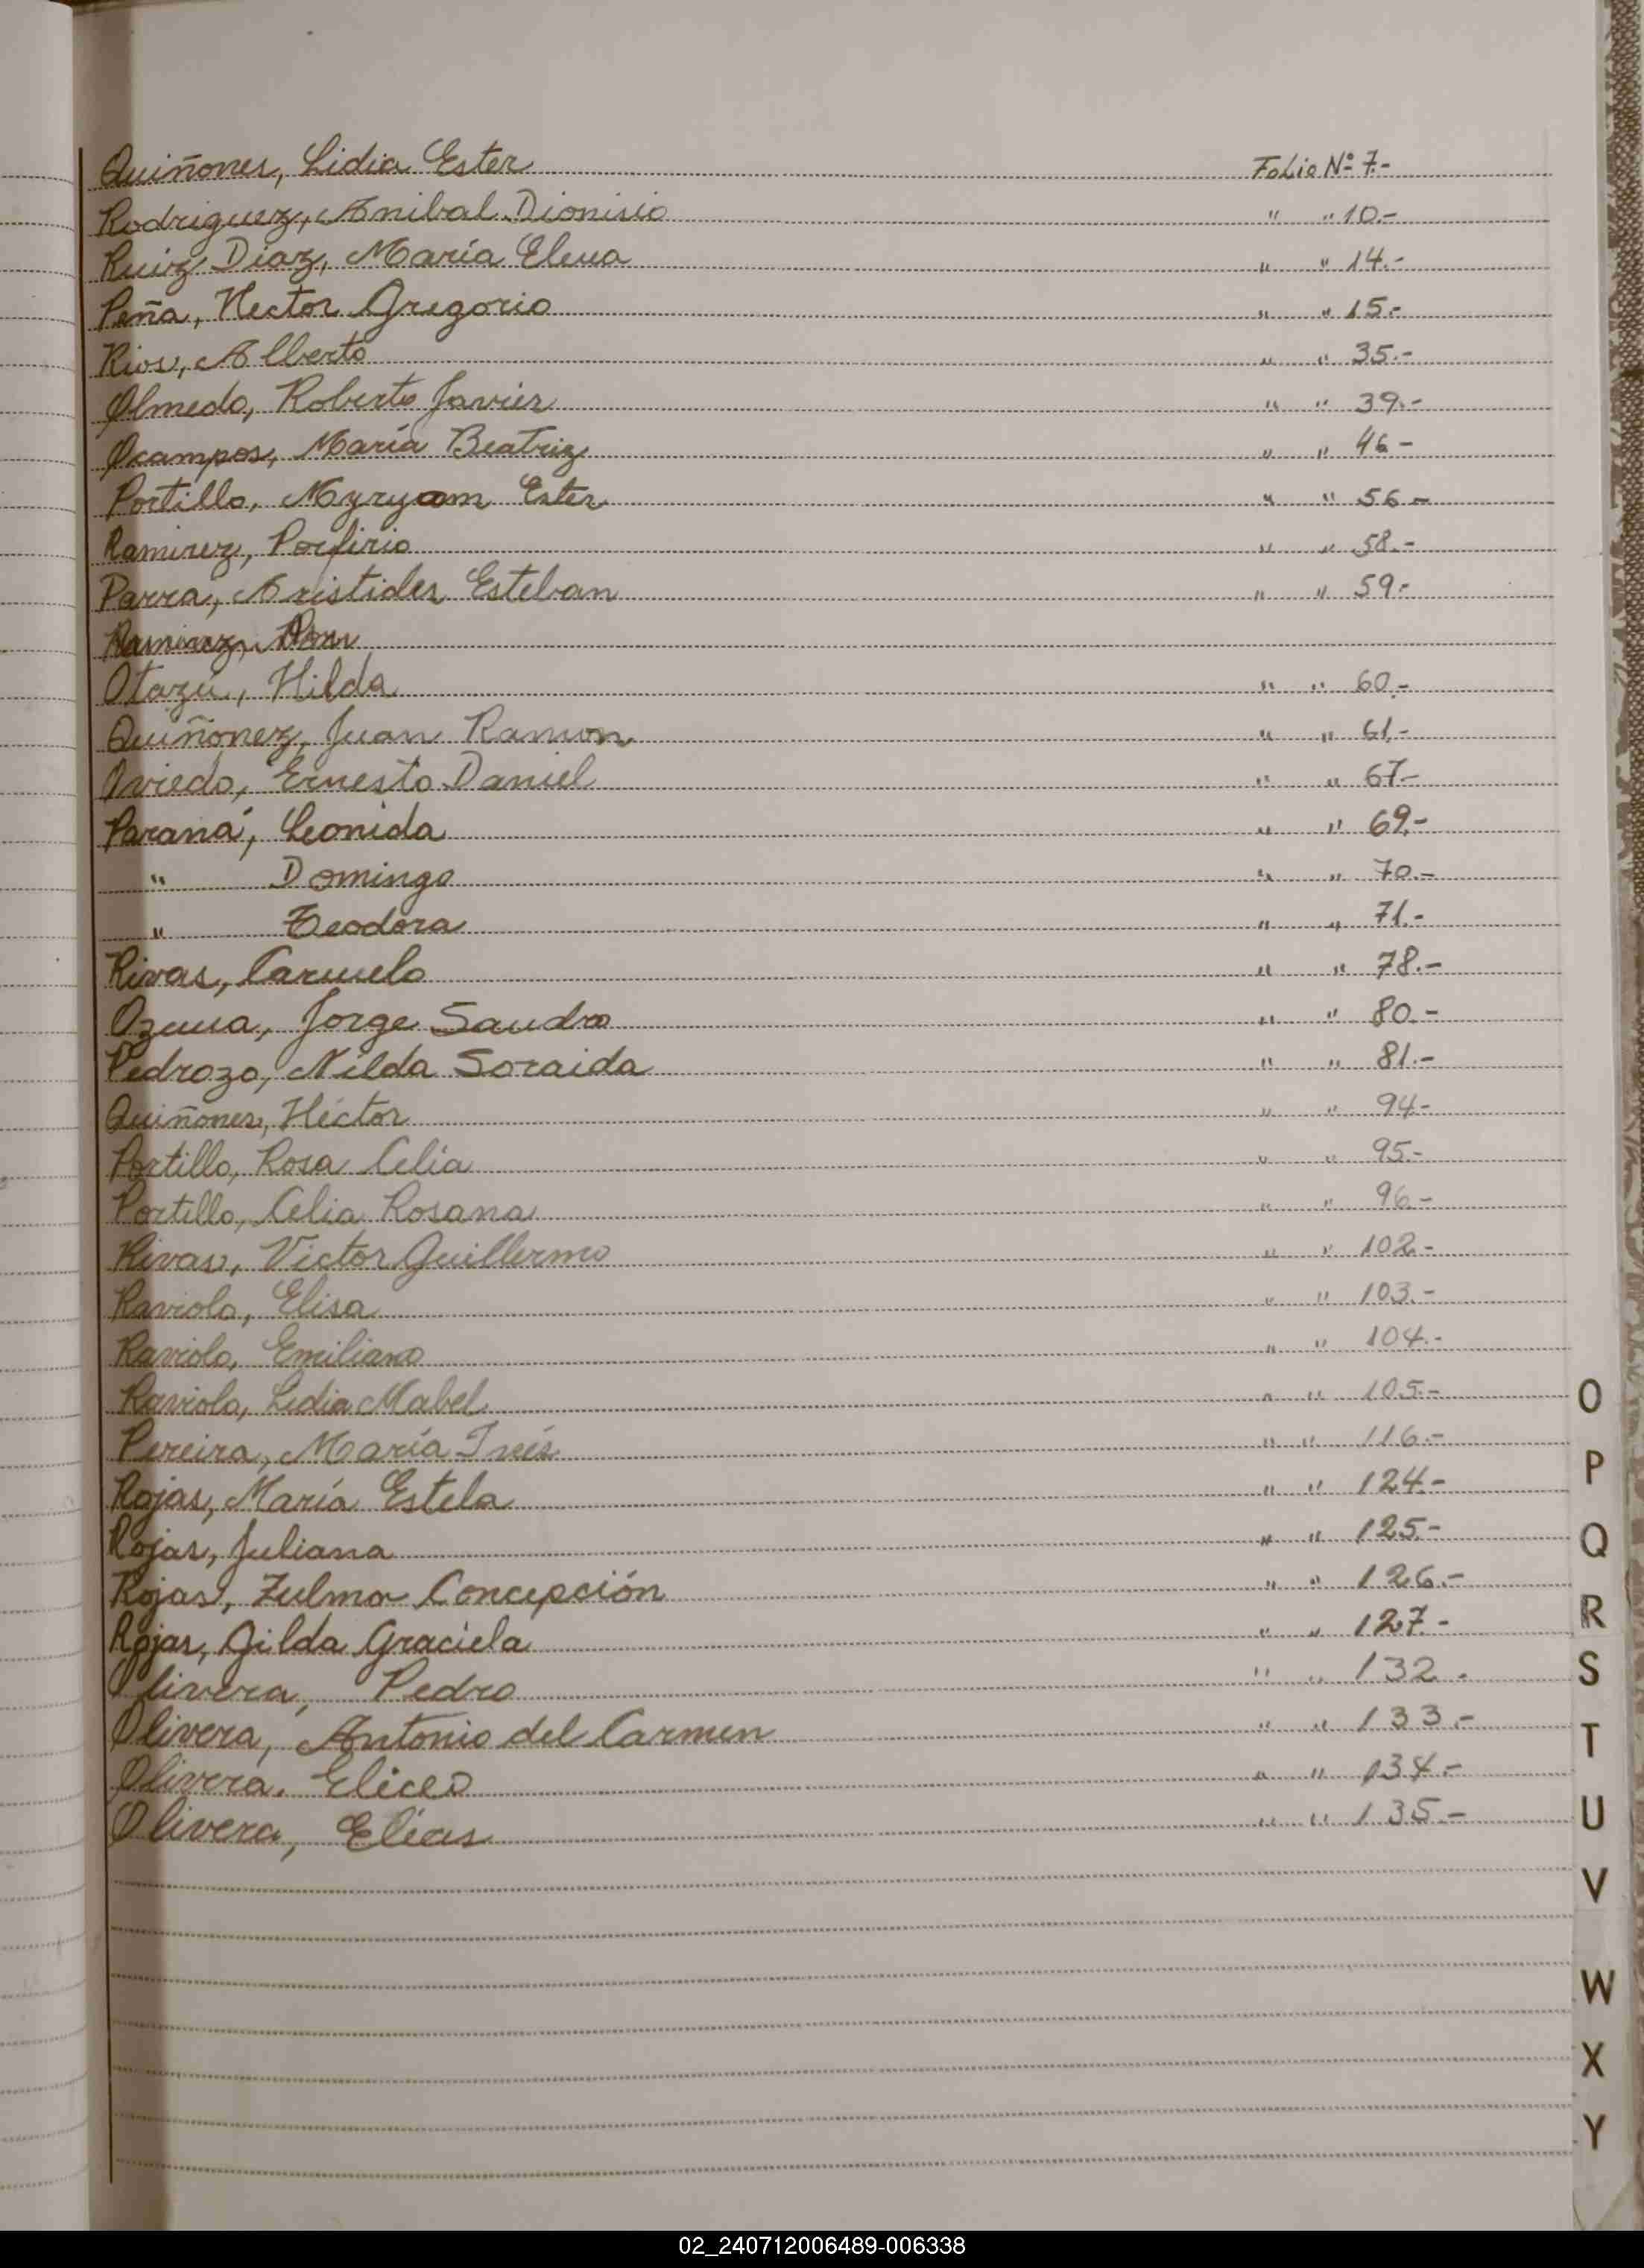 Quiñones, Lidia Ester Folio Nº 7.-
Rodriguez, Anibal Dionisio " " 10.-
Ruiz Diaz, María Elena " " 14.-
Peña, Hector Gregorio " " 15.-
Rios, Alberto " " 35.-
Olmedo, Roberto Javier " " 39.-
Ocampos, María Beatriz " " 46-
Portillo, Myryam Ester " " 56-
Ramirez, Porfirio " " 58.-
Parra, Aristides Esteban " " 59.-
Ramirez,
Otazú, Hilda " " 60.-
Quiñonez, Juan Ramon " " 61.-
Oviedo, Ernesto Daniel " " 67-
Paraná, Leonida " " 69.-
" Domingo " " 70.-
" Teodora " " 71.-
Rivas, Carmelo " " 78.-
Ozuna, Jorge Sandro " " 80.-
Pedrozo, Nilda Soraida " " 81.-
Quiñones, Héctor " " 94-
Portillo, Rosa Celia " " 95.-
Portillo, Celia Rosana " " 96-
Rivas, Victor Guillermo " " 102-
Raviolo, Elisa " " 103.-
Raviolo, Emiliano " " 104.-
Raviolo, Lidia Mabel " " 105-
Pereira, María Inés " " 116.-
Rojas, María Estela " " 124-
Rojas, Juliana " " 125-
Rojas, Zulma Concepción " " 126.-
Rojas, Gilda Graciela " " 127-
Olivera, Pedro " " 132.
Olivera, Antonio del Carmen " " 133.-
Olivera, Eliceo " " 134.-
Olivera, Elias " " 135-
O
P
Q
R
S
T
U
V
W
X
Y
02_240712006489-006338